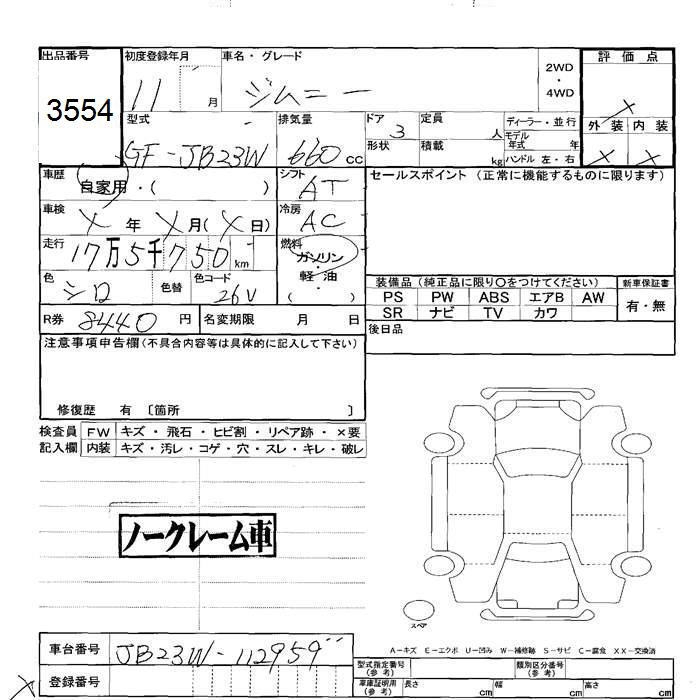 出品番号 初度登録年月 車名・グレード 2WD・4WD 評価点
3554 11 月 ジムニー ×
型式 排気量 ドア 定員 ディーラー・並行 外装 内装
GF-JB23W 660 cc 3 人 モデル年式 年 × ×
形状 積載 kg ハンドル 左・右
車歴 自家用・( ) シフト AT セールスポイント (正常に機能するものに限ります)
車検 × 年 × 月 (×日) 冷房 AC
走行 17万5千750km 燃料 ガソリン・軽油
( ・ )
色 シロ 色替 色コード 26V
装備品 (純正品に限り○をつけてください) 新車保証書
PS PW ABS エアB AW 有・無
SR ナビ TV カワ
R券 8440 円 名変期限 月 日 後日品
注意事項申告欄(不具合内容等は具体的に記入して下さい)
修復歴 有 〔箇所 〕
検査員 FW キズ・飛石・ヒビ割・リペア跡・×要
記入欄 内装 キズ・汚レ・コゲ・穴・スレ・キレ・破レ
ノークレーム車
スペア
A-キズ E-エクボ U-凹み W-補修跡 S-サビ C-腐食 XX-交換済
車台番号 JB23W-112959
型式指定番号(参考) 類別区分番号(参考)
登録番号 車庫証明用(参考) 長さ cm 幅 cm 高さ cm
×